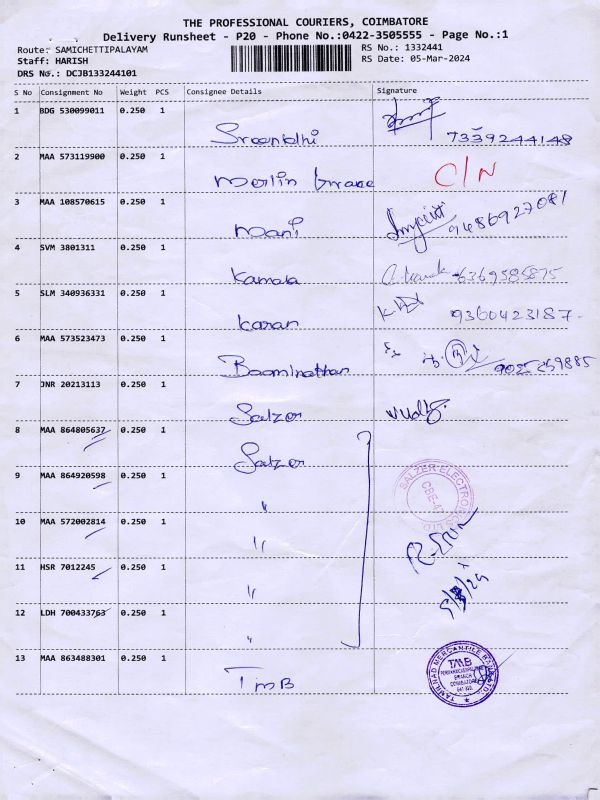 THE PROFESSIONAL COURIERS, COIMBATORE
Delivery Runsheet - P20 - Phone No.:0422-3505555 - Page No.:1
Route: SAMICHETTIPALAYAM
Staff: HARISH
DRS No.: DCJB133244101
RS No.: 1332441
RS Date: 05-Mar-2024
S No Consignment No Weight PCS Consignee Details Signature
1 BDG 530099011 0.250 1 Sreenidhi 7339244148
2 MAA 573119900 0.250 1 Merlin C/N
3 MAA 108570615 0.250 1 Mani 9486927081
4 SVM 3801311 0.250 1 Kamala 6369585875
5 SLM 340936331 0.250 1 Karan 9360423187
6 MAA 573523473 0.250 1 Boominathan
7 JNR 20213113 0.250 1 Salzer
8 MAA 864805637 0.250 1 Salzer
9 MAA 864920598 0.250 1 "
10 MAA 572002814 0.250 1 "
11 HSR 7012245 0.250 1 "
12 LDH 700433763 0.250 1 "
13 MAA 863488301 0.250 1 TMB
SALZER ELECTRONICS LTD
CBE-47
5/3/24
TAMILNAD MERCANTILE BANK LTD
TMB
BRANCH
COIMBATORE